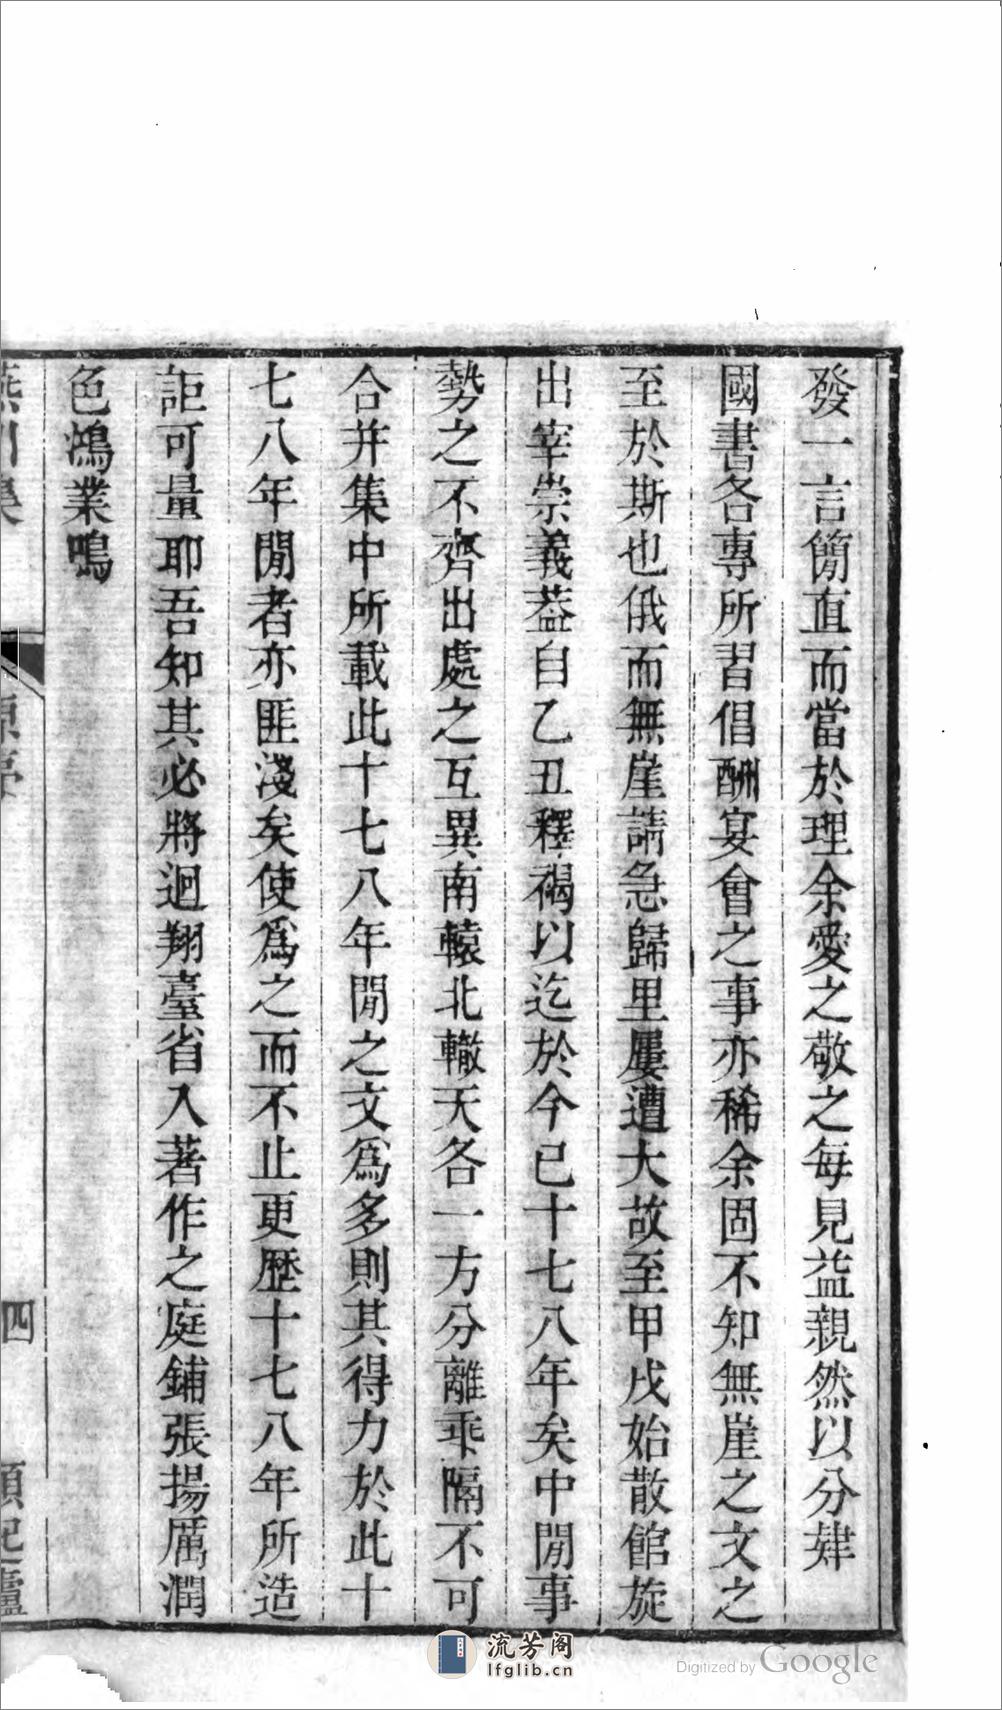 發一言簡直而當於理余愛之敬之每見益親然以分肄
國書各專所習倡酬宴會之事亦稀余固不知無崖之文之
至於斯也俄而無崖請急歸里屢遭大故至甲戌始散館旋
出宰崇義葢自乙丑釋褐以迄於今已十七八年矣中閒事
勢之不齊出處之互異南轅北轍天各一方分離乖隔不可
合并集中所載此十七八年閒之文爲多則其得力於此十
七八年閒者亦匪淺矣使爲之而不止更歷十七八年所造
詎可量耶吾知其必將迴翔臺省入著作之庭鋪張揚厲潤
色鴻業鳴
四
流芳阁
lfglib.cn
Digitized by Google